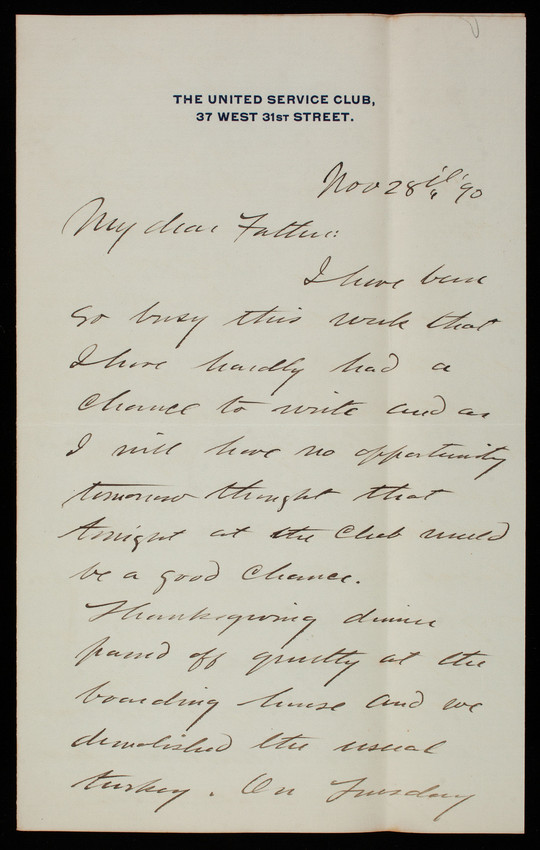 THE UNITED SERVICE CLUB,
37 WEST 31ST STREET.
Nov 28th, '90
My dear Father:
I have been
so busy this week that
I have hardly had a
chance to write and as
I will have no opportunity
tomorrow thought that
tonight at the Club would
be a good chance.
Thanksgiving dinner
passed off quietly at the
boarding house and we
demolished the usual
turkey. On Tuesday